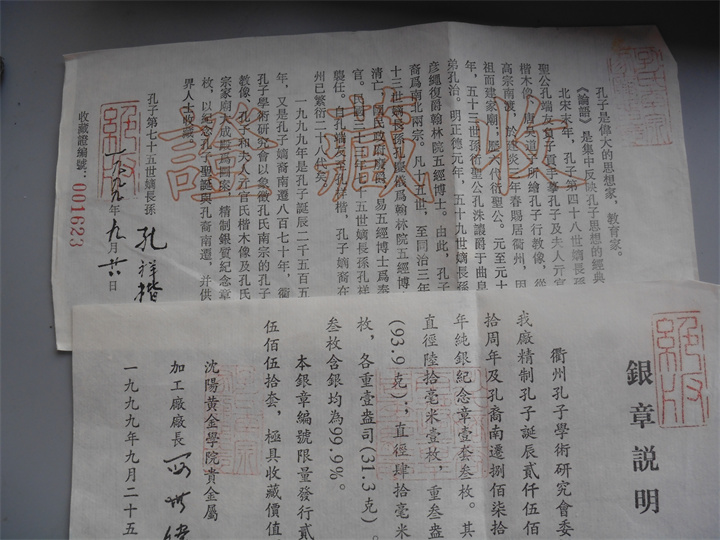 收藏證
孔子是偉大的思想家,教育家。
《論語》是集中反映孔子思想的經典
北宋末年,孔子第四十八世嫡長孫
聖公孔端友負子貢手摹孔子及夫人亓官
楷木像、唐吳道子所繪孔子行教像,從
高宗南渡,於建炎三年春賜居衢州,因
祖而建家廟,歷六代衍聖公。元至元十
年,五十三世孫衍聖公孔洙讓爵于曲阜
弟孔治。明正德元年,五十九世嫡長孫
彥繩復爵翰林院五經博士。由此,孔子
裔爲南北兩宗。凡十五世,至同治三年
十三世嫡長孫孔慶儀爲翰林院五經博
清亡,國民政府 易五經博士爲奉
官。民國三十七年 五世嫡長孫孔祥
襲任。自孔端友至孔祥楷,孔子嫡裔在
州已繁衍二十八代矣。
一九九九年是孔子誕辰二千五百五
年,又是孔子嫡裔南遷八百七十年,衢
孔子學術研究會以象徵孔氏南宗的孔子
教像、孔子和夫人亓官氏楷木像及孔氏
宗家廟大成殿爲圖案,精制銀質紀念章
枚,以紀念孔子聖誕與孔裔南遷,并供
界人士收藏。
孔子第七十五世嫡長孫 孔祥楷
一九九九年九月廿八日
收藏證編號:001623
絕版
絕版
銀章說明
衢州孔子學術研究會委
我廠精制孔子誕辰貳仟伍佰
拾周年及孔裔南遷捌佰柒拾
年純銀紀念章壹套叁枚。其
直徑陸拾毫米壹枚,重叁盎
(93.9克);直徑肆拾毫米
枚,各重壹盎司(31.3克)。
叁枚含銀均為99.9%。
本銀章編號限量發行貳
伍佰伍拾套,極具收藏價值
沈陽黃金學院貴金屬
加工廠廠長
一九九九年九月二十五